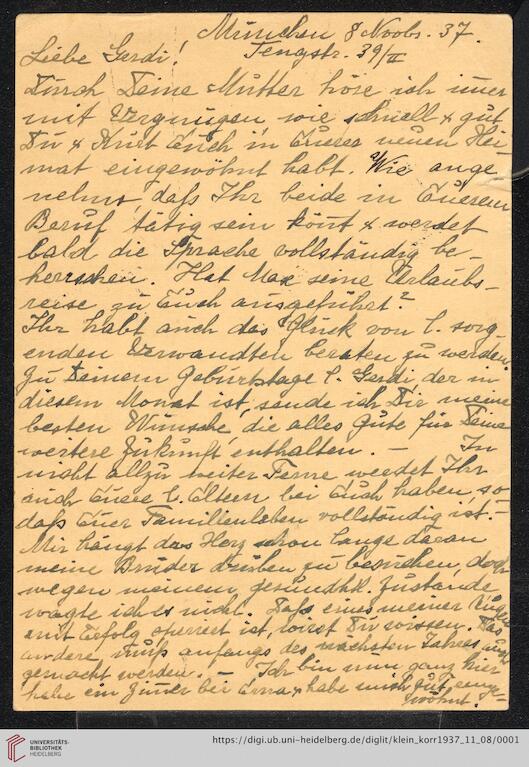 München 8 Novbr. 37.
Tengstr. 39/II
Liebe Gerdi!
Durch Deine Mutter höre ich imer
mit Vergnügen wie schnell & gut
Du & Kurt Euch in Euerer neuen Hei-
mat eingewöhnt habt. Wie ange
nehm, daß Ihr beide in Euerem
Beruf tätig sein könt & werdet
bald die Sprache vollständig be-
herrschen. Hat Max seine Urlaubs-
reise zu Euch ausgeführt?
Ihr habt auch das Glück von l. sorg-
enden Verwandten beraten zu werden.
Zu Deinem Geburtstage l. Gerdi, der in
diesem Monat ist, sende ich Dir meine
besten Wünsche, die alles Gute für Deine
weitere Zukunft enthalten. — In
nicht allzu weiter Ferne werdet Ihr
auch Euere l. Eltern bei Euch haben, so
daß Euer Familienleben vollständig ist. —
Mir hängt das Herz schon lange daran
meine Brüder drüben zu besuchen, doch
wegen meinem gesundhtl. Zustande
wagte ich es nicht. Daß eines meiner Augen
mit Erfolg operiert ist, wirst Du wissen. Das
andere muß anfangs des nächsten Jahres auch
gemacht werden. — Ich bin nun ganz hier
habe ein Zimer bei Erna & habe mich gut einge-
wöhnt.
UNIVERSITÄTS-
BIBLIOTHEK
HEIDELBERG
https://digi.ub.uni-heidelberg.de/diglit/klein_korr1937_11_08/0001